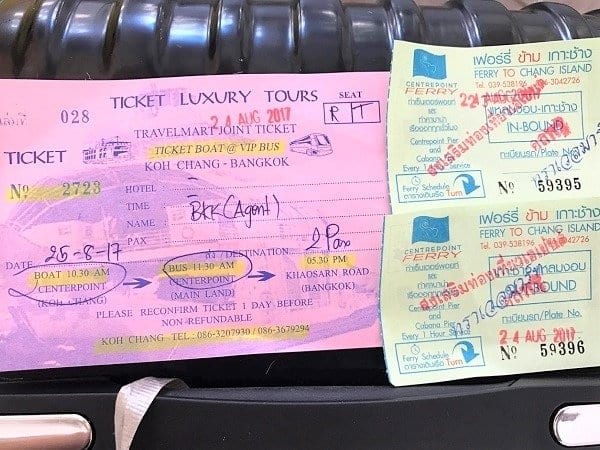 028
TICKET LUXURY TOURS
SEAT
R T
24 AUG 2017
TRAVELMART JOINT TICKET
TICKET
TICKET BOAT @ VIP BUS
KOH CHANG - BANGKOK
№ 2723
HOTEL :
TIME :
BKK (Agent)
NAME :
PAX
2 Pax
DATE 25-8-17
DESTINATION
BOAT 10.30 AM
BUS 11:30 AM
05.30 PM
CENTERPOINT
CENTERPOINT
KHAOSARN ROAD
(KOH CHANG)
(MAIN LAND)
(BANGKOK)
PLEASE RECONFIRM TICKET 1 DAY BEFORE
NON-REFUNDABLE
KOH CHANG TEL : 086-3207930 / 086-3679294
CENTREPOINT
FERRY
Centrepoint Pier
and
Cabana Pier
Every 1 Hour Service
Ferry Schedule
ตารางเดินเรือ Turn
เฟอร์รี่ ข้าม เกาะช้าง
FERRY TO CHANG ISLAND
IN-BOUND
ทะเบียนรถ/Plate No.
№ 59395
CENTREPOINT
FERRY
Centrepoint Pier
and
Cabana Pier
Every 1 Hour Service
Ferry Schedule
ตารางเดินเรือ Turn
เฟอร์รี่ ข้าม เกาะช้าง
FERRY TO CHANG ISLAND
ทะเบียนรถ/Plate No.
24 AUG 2017
№ 59396